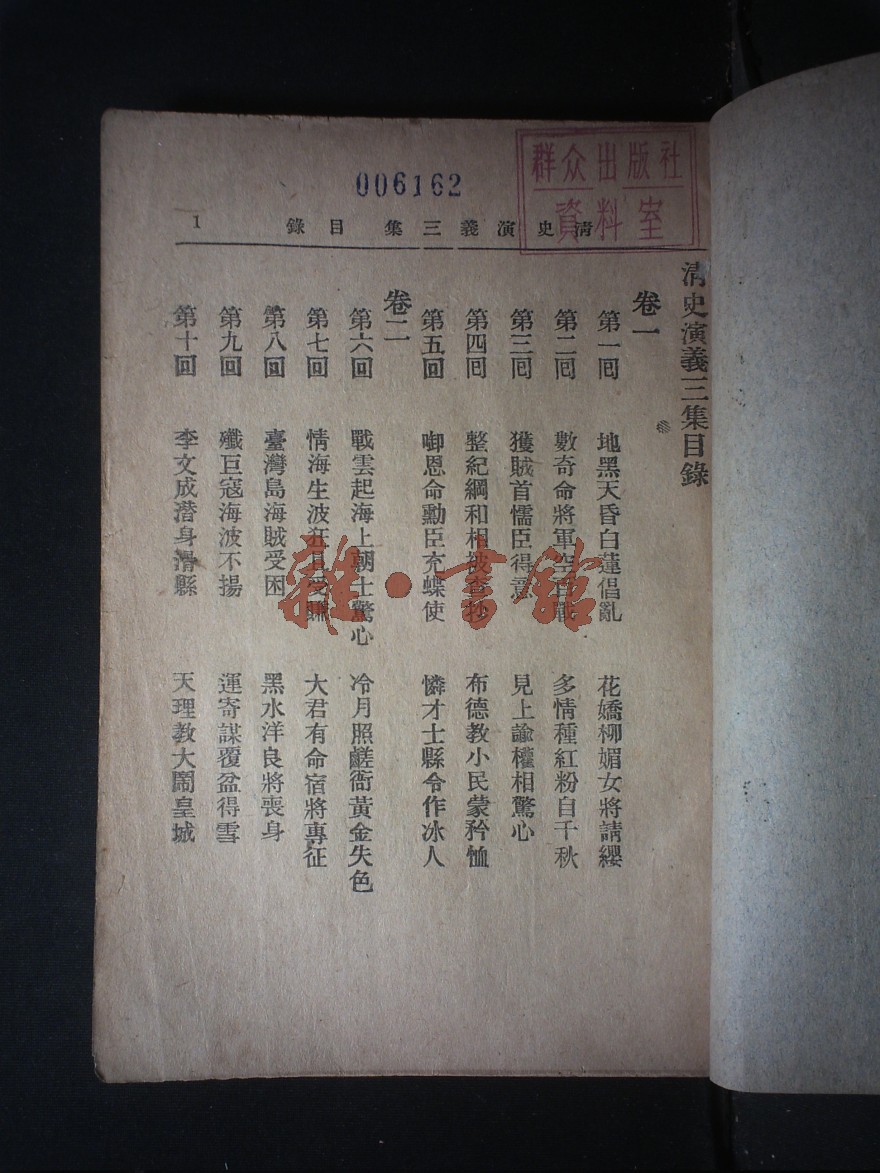 群众出版社
資料室
006162
清史演義三集 目錄
1
清史演義三集目錄
卷一
第一回 地黑天昏白蓮倡亂 花嬌柳媚女將請纓
第二回 數奇命將軍空百戰 多情種紅粉自千秋
第三回 獲賊首懦臣得意 見上諭權相驚心
第四回 整紀綱和相被查抄 布德教小民蒙矜恤
第五回 啣恩命勳臣充蝶使 憐才士縣令作冰人
卷二
第六回 戰雲起海上朝士驚心 冷月照鹺衙黃金失色
第七回 情海生波狂且受 大君有命宿將專征
第八回 臺灣島海賊受困 黑水洋良將喪身
第九回 殲巨寇海波不揚 運寄謀覆盆得雪
第十回 李文成潛身滑縣 天理教大鬧皇城
雜·書館